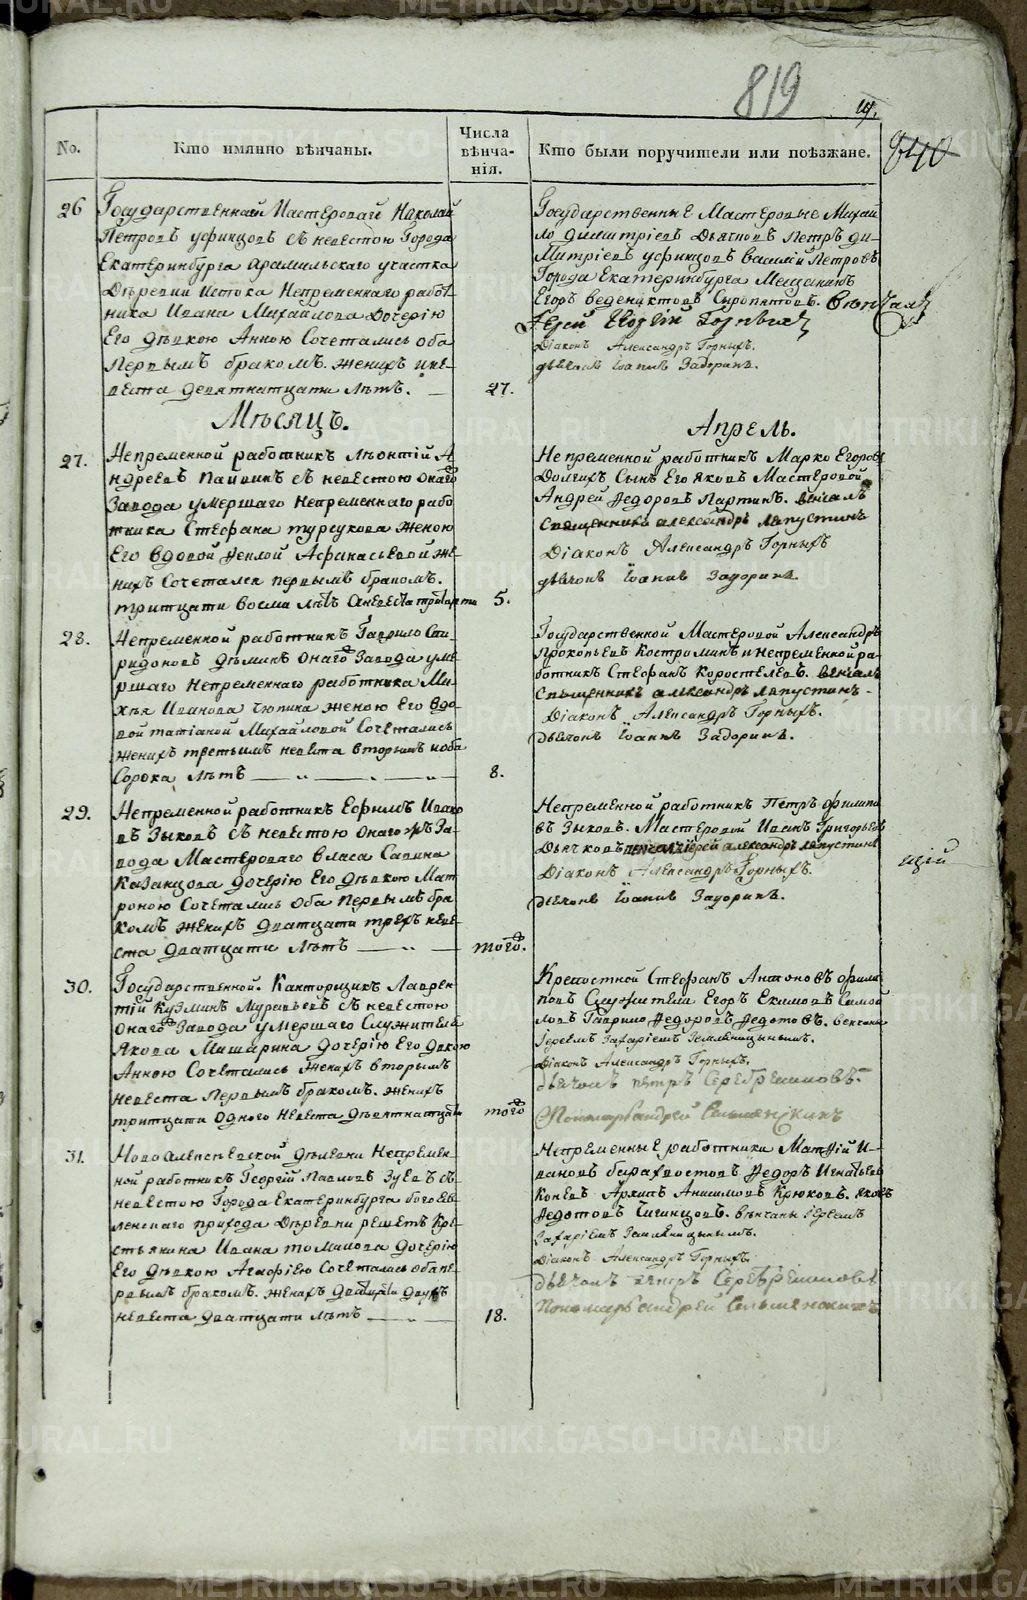 819
14.
840
No.
Кто имянно вѣнчаны.
Числа вѣнча-
нія.
Кто были поручители или поѣзжане.
26
Государственнай Мастеровай Николай
Петровъ уфинцовъ съ невестою Города
Екатеринбурга Арамильскаго участка
Дѣревни Истока Непременнаго работ-
ника Ивана Михайлова Дочерію
Его дѣвкою Анною Сочетались оба
первымъ бракомъ. женихъ и не-
веста девятнатцати лѣтъ.
27.
Государственные Мастеровые Михай
ло Димитріевъ Дьячковъ Петръ Ди-
митріевъ уфинцовъ Василей Петровъ
Города Екатеринбурга Мещанинъ
Егоръ Ведениктовъ Сыропятовъ. Вѣнчалъ
Іерей Георгій Горныхъ
Діаконъ Александръ Горныхъ.
дьячокъ Іоаннъ Задоринъ.
Мѣсяцъ.
Апрель.
27.
Непременной работникъ Лѣонтій А
ндреевъ съ невестою онагожъ
Завода умершаго непременнаго рабо
тника Стефана турсукова женою
Его вдовой Ѳеклой Афанасьевой же
нихъ Сочетался первымъ бракомъ.
тритцати восми лѣтъ
5.
Непременной работникъ Марко Егоровъ
Долгихъ Сынъ Его Яковъ Мастеровой
Андрей Ѳедоровъ Партинъ. венчалъ
Священникъ Александръ Ляпустинъ
Діаконъ Александръ Горныхъ
дьячокъ Іоаннъ Задоринъ.
28.
Непременной работникъ Гаврило Спи-
ридоновъ Дѣминъ онагожъ Завода уме
ршаго Непременнаго работника Ми-
хея Иванова Чюпина женою Его вдо-
вой татіаной Михайловой Сочетались
женихъ третьимъ невеста вторымъ иоба
Сорока лѣтъ
8.
Государственной Мастеровой Александръ
Прокопьевъ Костроминъ и непременной ра-
ботникъ Стефанъ Коростелевъ. венчалъ
Священникъ Александръ Ляпустинъ
Діаконъ Александръ Горныхъ.
дьячокъ Іоаннъ Задоринъ.
29.
Непременной работникъ Ефимъ Ивано
въ Зыковъ съ невестою онагожъ За-
вода Мастероваго Власа Савина
Казанцова дочерію Его дѣвкою Мат
роною Сочетались оба первымъ бра
комъ женихъ дватцати трехъ неве-
ста дватцати лѣтъ
того.
Непременной работникъ Петръ филипо
въ Зыковъ. Мастеровой Иванъ Григорьевъ
Дьячковъ венчалъ Іерей Александръ Ляпустинъ
Діаконъ Александръ Горныхъ.
дьячокъ Іоаннъ Задоринъ.
30.
Государственной. Канторщикъ Лаврен
тій Кузминъ Муравьевъ съ невестою
онагожъ Завода умершаго Служителя
Якова Мишарина дочерію Его дѣвкою
Анною Сочетались женихъ вторымъ
невеста первымъ бракомъ. женихъ
тритцати одного невеста
тогожъ
Крепостной Стефанъ Антоновъ филип
повъ Служители Егоръ Екимовъ
Гаврило Ѳедоровъ Ѳедотовъ. венчаны
Іереемъ Захаріемъ Земляницынымъ.
Діаконъ Александръ Горныхъ.
дьячокъ петръ Серебрениковъ
Пономарь андрей
31.
Новоалексеевской дѣревни Непремен
ной работникъ Георгій Павловъ Зуевъ съ
невестою Города Екатеринбурга богояв
ленскаго прихода Дѣревни решетъ Кре
стьянина Ивана томилова дочерію
Его дѣвкою Агафіею Сочетались оба пе
рвымъ бракомъ. женихъ дватцати двухъ
невеста дватцати лѣтъ
18.
Непременные работники Матѳій И-
вановъ Ѳедоръ Игнатьевъ
Коневъ Архипъ Анисимовъ Крюковъ. Яковъ
Ѳедотовъ Сигинцовъ. Вѣнчаны Іереемъ
Захаріемъ Земляницынымъ.
Діаконъ Александръ Горныхъ.
дьячокъ петръ Серебрениковъ
Пономарь андрей
щій